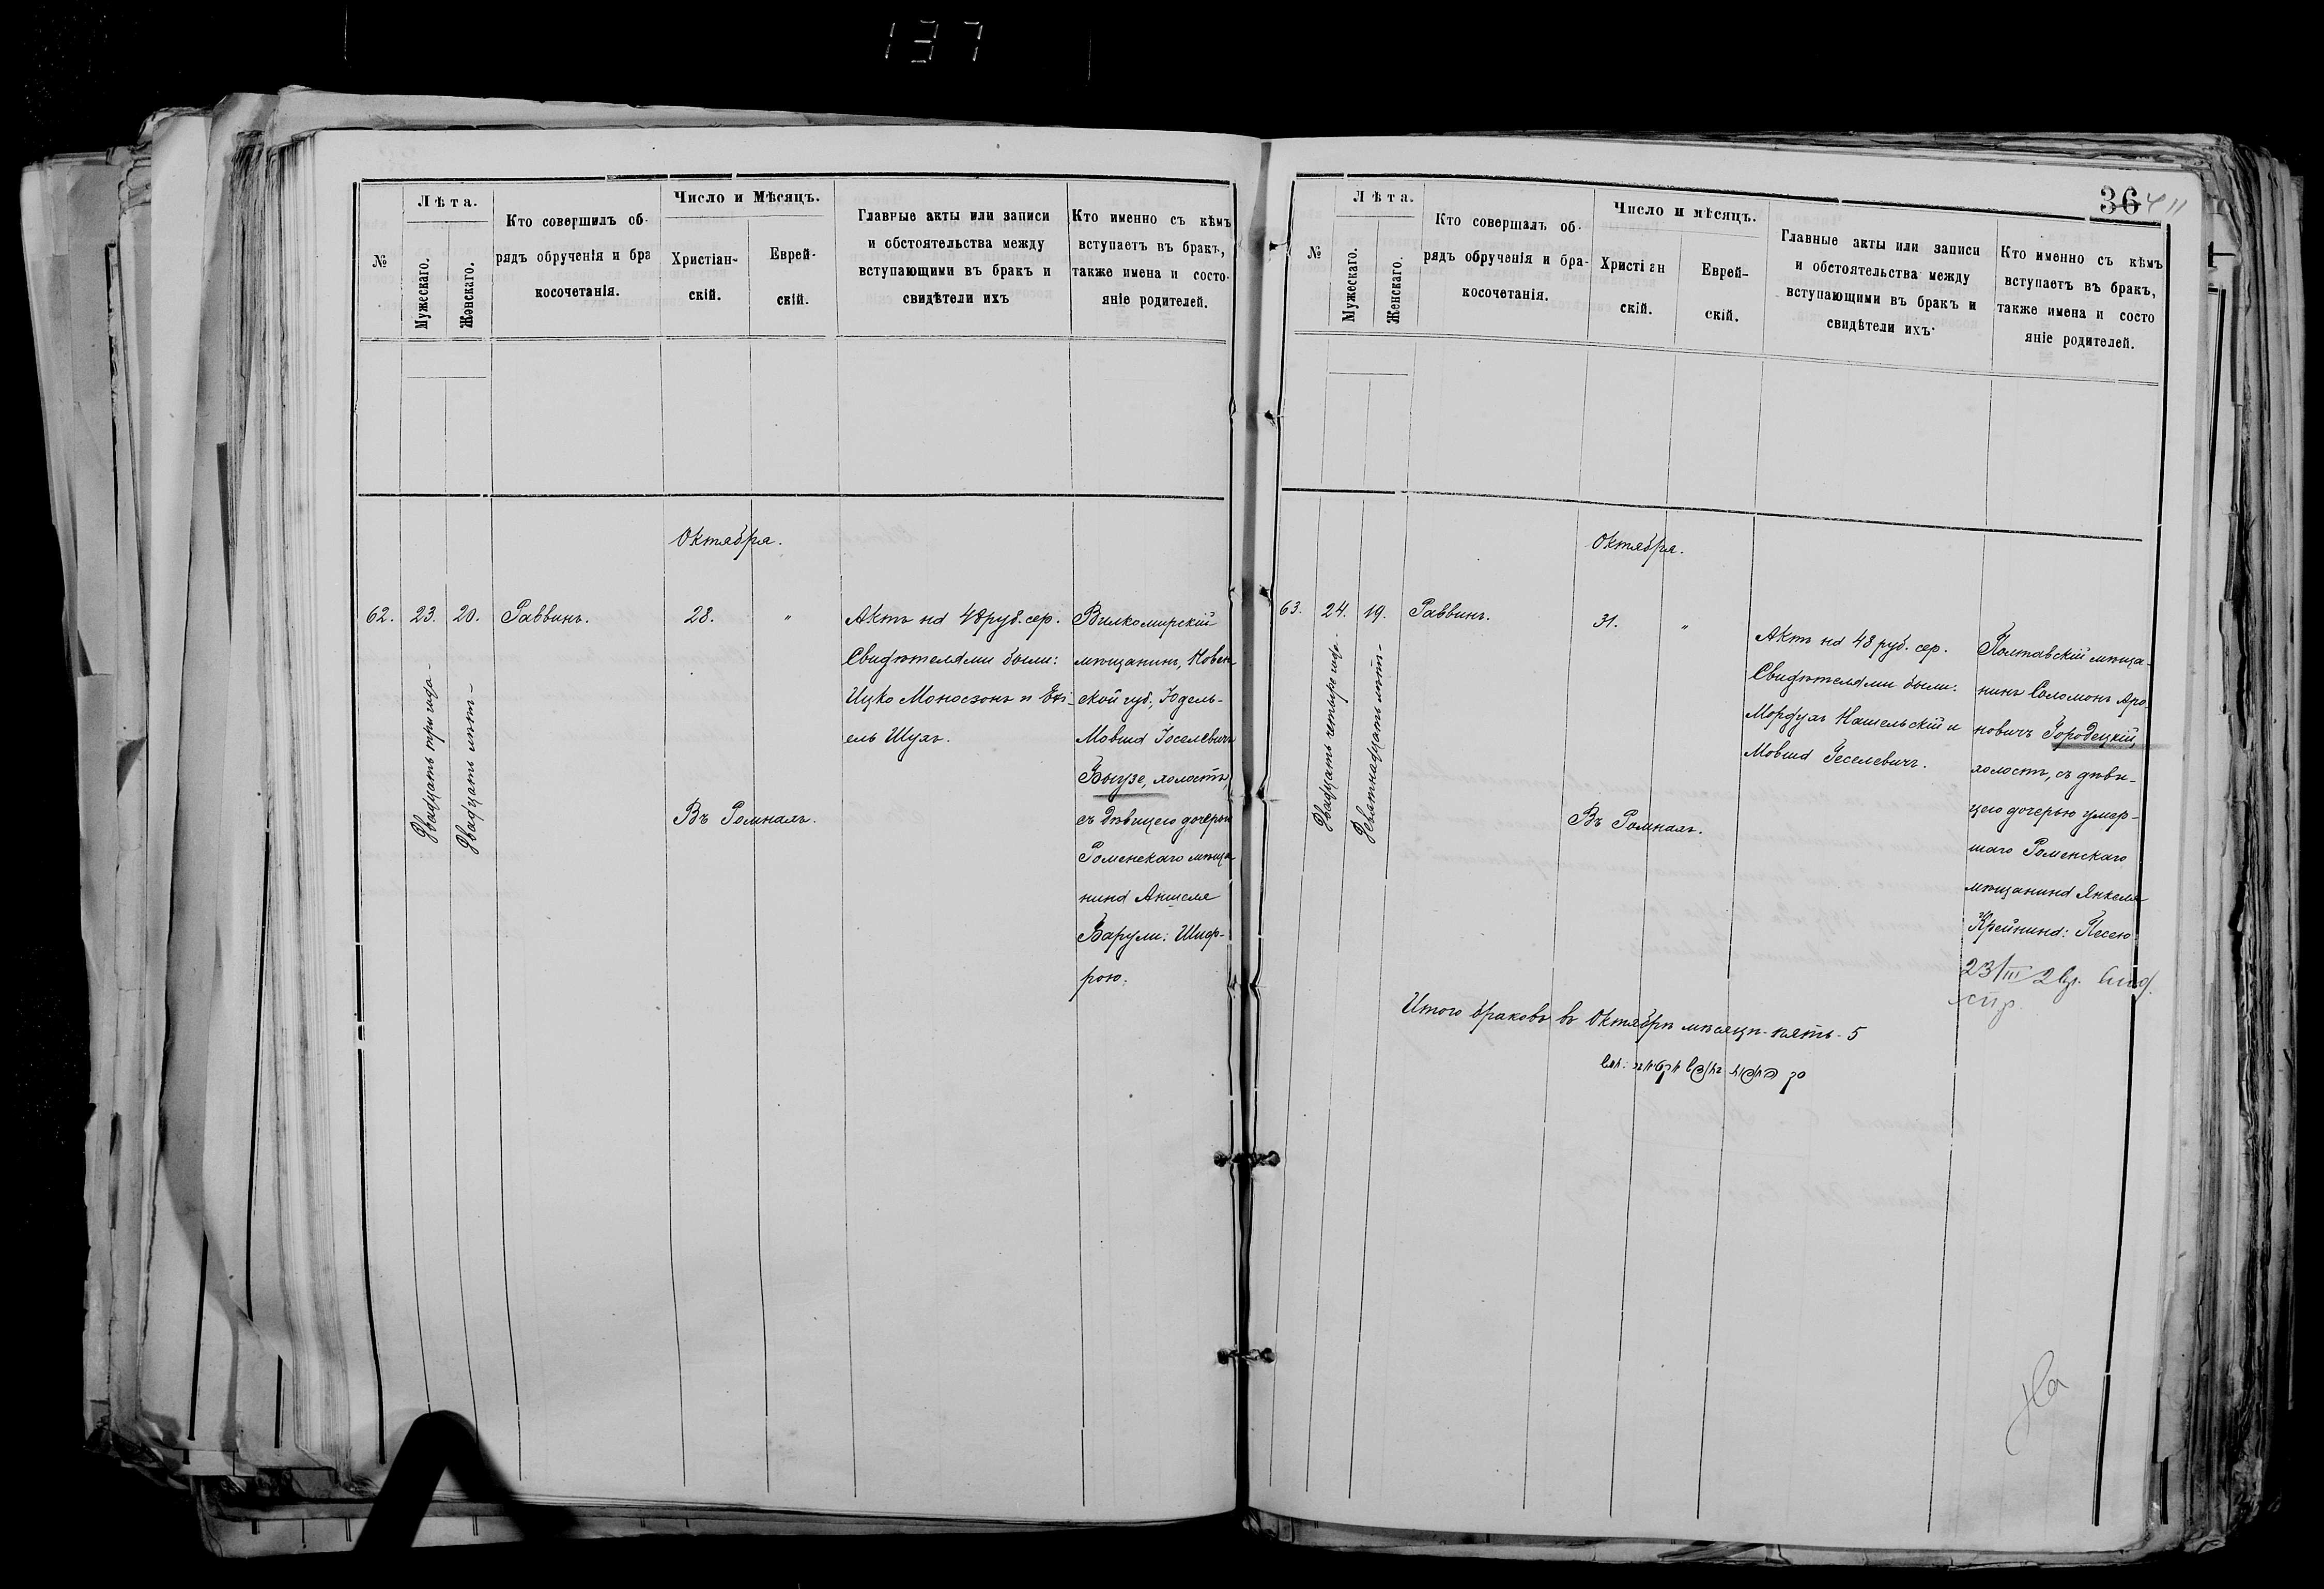 137
№
Лѣта.
Мужескаго.
Женскаго.
Кто совершилъ об-
рядъ обрученія и бра
косочетанія.
Число и Мѣсяцъ.
Христіан-
скій.
Еврей-
скій.
Главные акты или записи
и обстоятельства между
вступающими въ бракъ и
свидѣтели ихъ
Кто именно съ кѣмъ
вступаетъ въ бракъ,
также имена и состо-
яніе родителей.
Октября.
62.
23.
Двадцать три года
20.
Двадцать лѣтъ
Раввинъ.
28.
"
Въ Ромнахъ.
Актъ на 48 руб. сер.
Свидѣтелями были:
Ицко Моносзонъ и Ехі-
ель Шухъ.
Вилкомирскій
мѣщанинъ, Ковен
ской губ., Юдель-
Мовша Іоселевичъ
холостъ,
съ дѣвицею дочерью
Роменскаго мѣща
нина Аншеля
Шиф-
рою.
36
411
№
Лѣта.
Мужескаго.
Женскаго.
Кто совершалъ об-
рядъ обрученія и бра-
косочетанія.
Число и мѣсяцъ.
Христіан
скій.
Еврей-
скій.
Главные акты или записи
и обстоятельства между
вступающими въ бракъ и
свидѣтели ихъ
Кто именно съ кѣмъ
вступаетъ въ бракъ,
также имена и состо
яніе родителей.
Октября.
63.
24.
Двадцать четыре года
19.
Девятнадцать лѣтъ
Раввинъ.
31.
"
Въ Ромнахъ.
Актъ на 48 руб. сер.
Свидѣтелями были:
Мордухъ Нашельскій и
Мовша Геселевичъ.
Полтавскій мѣща-
нинъ Соломонъ Аро-
новичъ Городецкій,
холостъ, съ дѣви-
цею дочерью умер-
шаго Роменскаго
мѣщанина Янкеля
Крейнина: Песею
23/III
Итого браковъ въ Октябрѣ мѣсяцѣ пять - 5
На